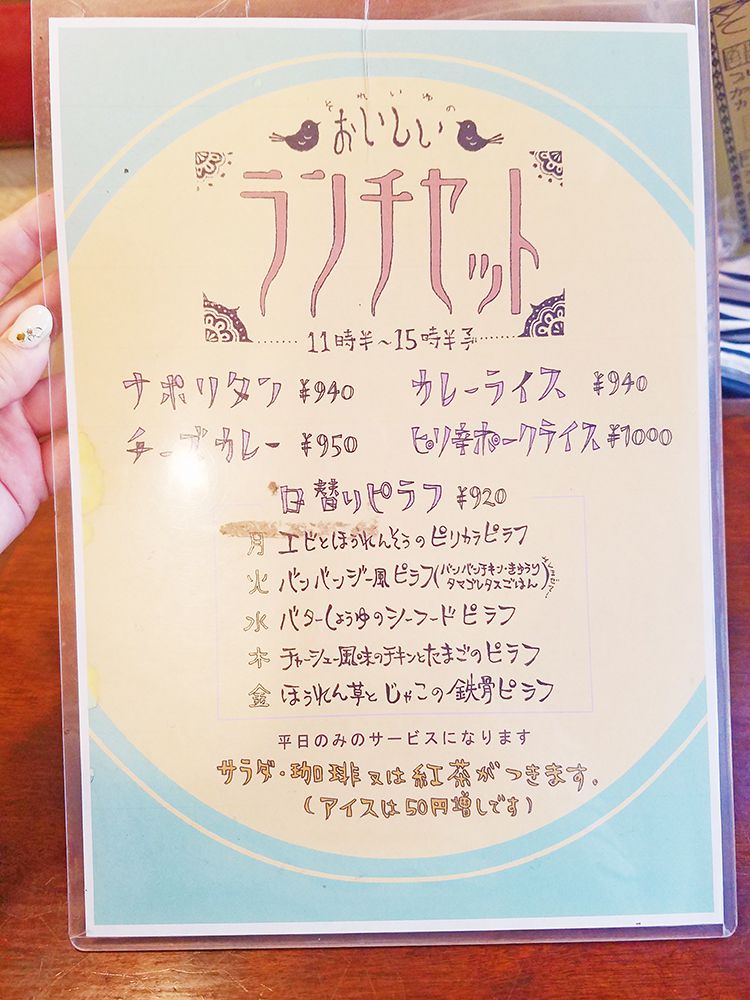 それいゆの
おいしい
ランチセット
11時半~15時半予
ナポリタン ¥940 カレーライス ¥940
チーズカレー ¥950 ピリ辛ポークライス ¥1000
日替りピラフ ¥920
月 エビとほうれんそうのピリカラピラフ
火 バンバンジー風ピラフ(バンバンチキン・きゅうり
タマゴレタスごはん)
水 バターしょうゆのシーフードピラフ
木 チャーシュー風味のチキンとたまごのピラフ
金 ほうれん草とじゃこの鉄骨ピラフ
平日のみのサービスになります
サラダ・珈琲又は紅茶がつきます。
(アイスは50円増しです)